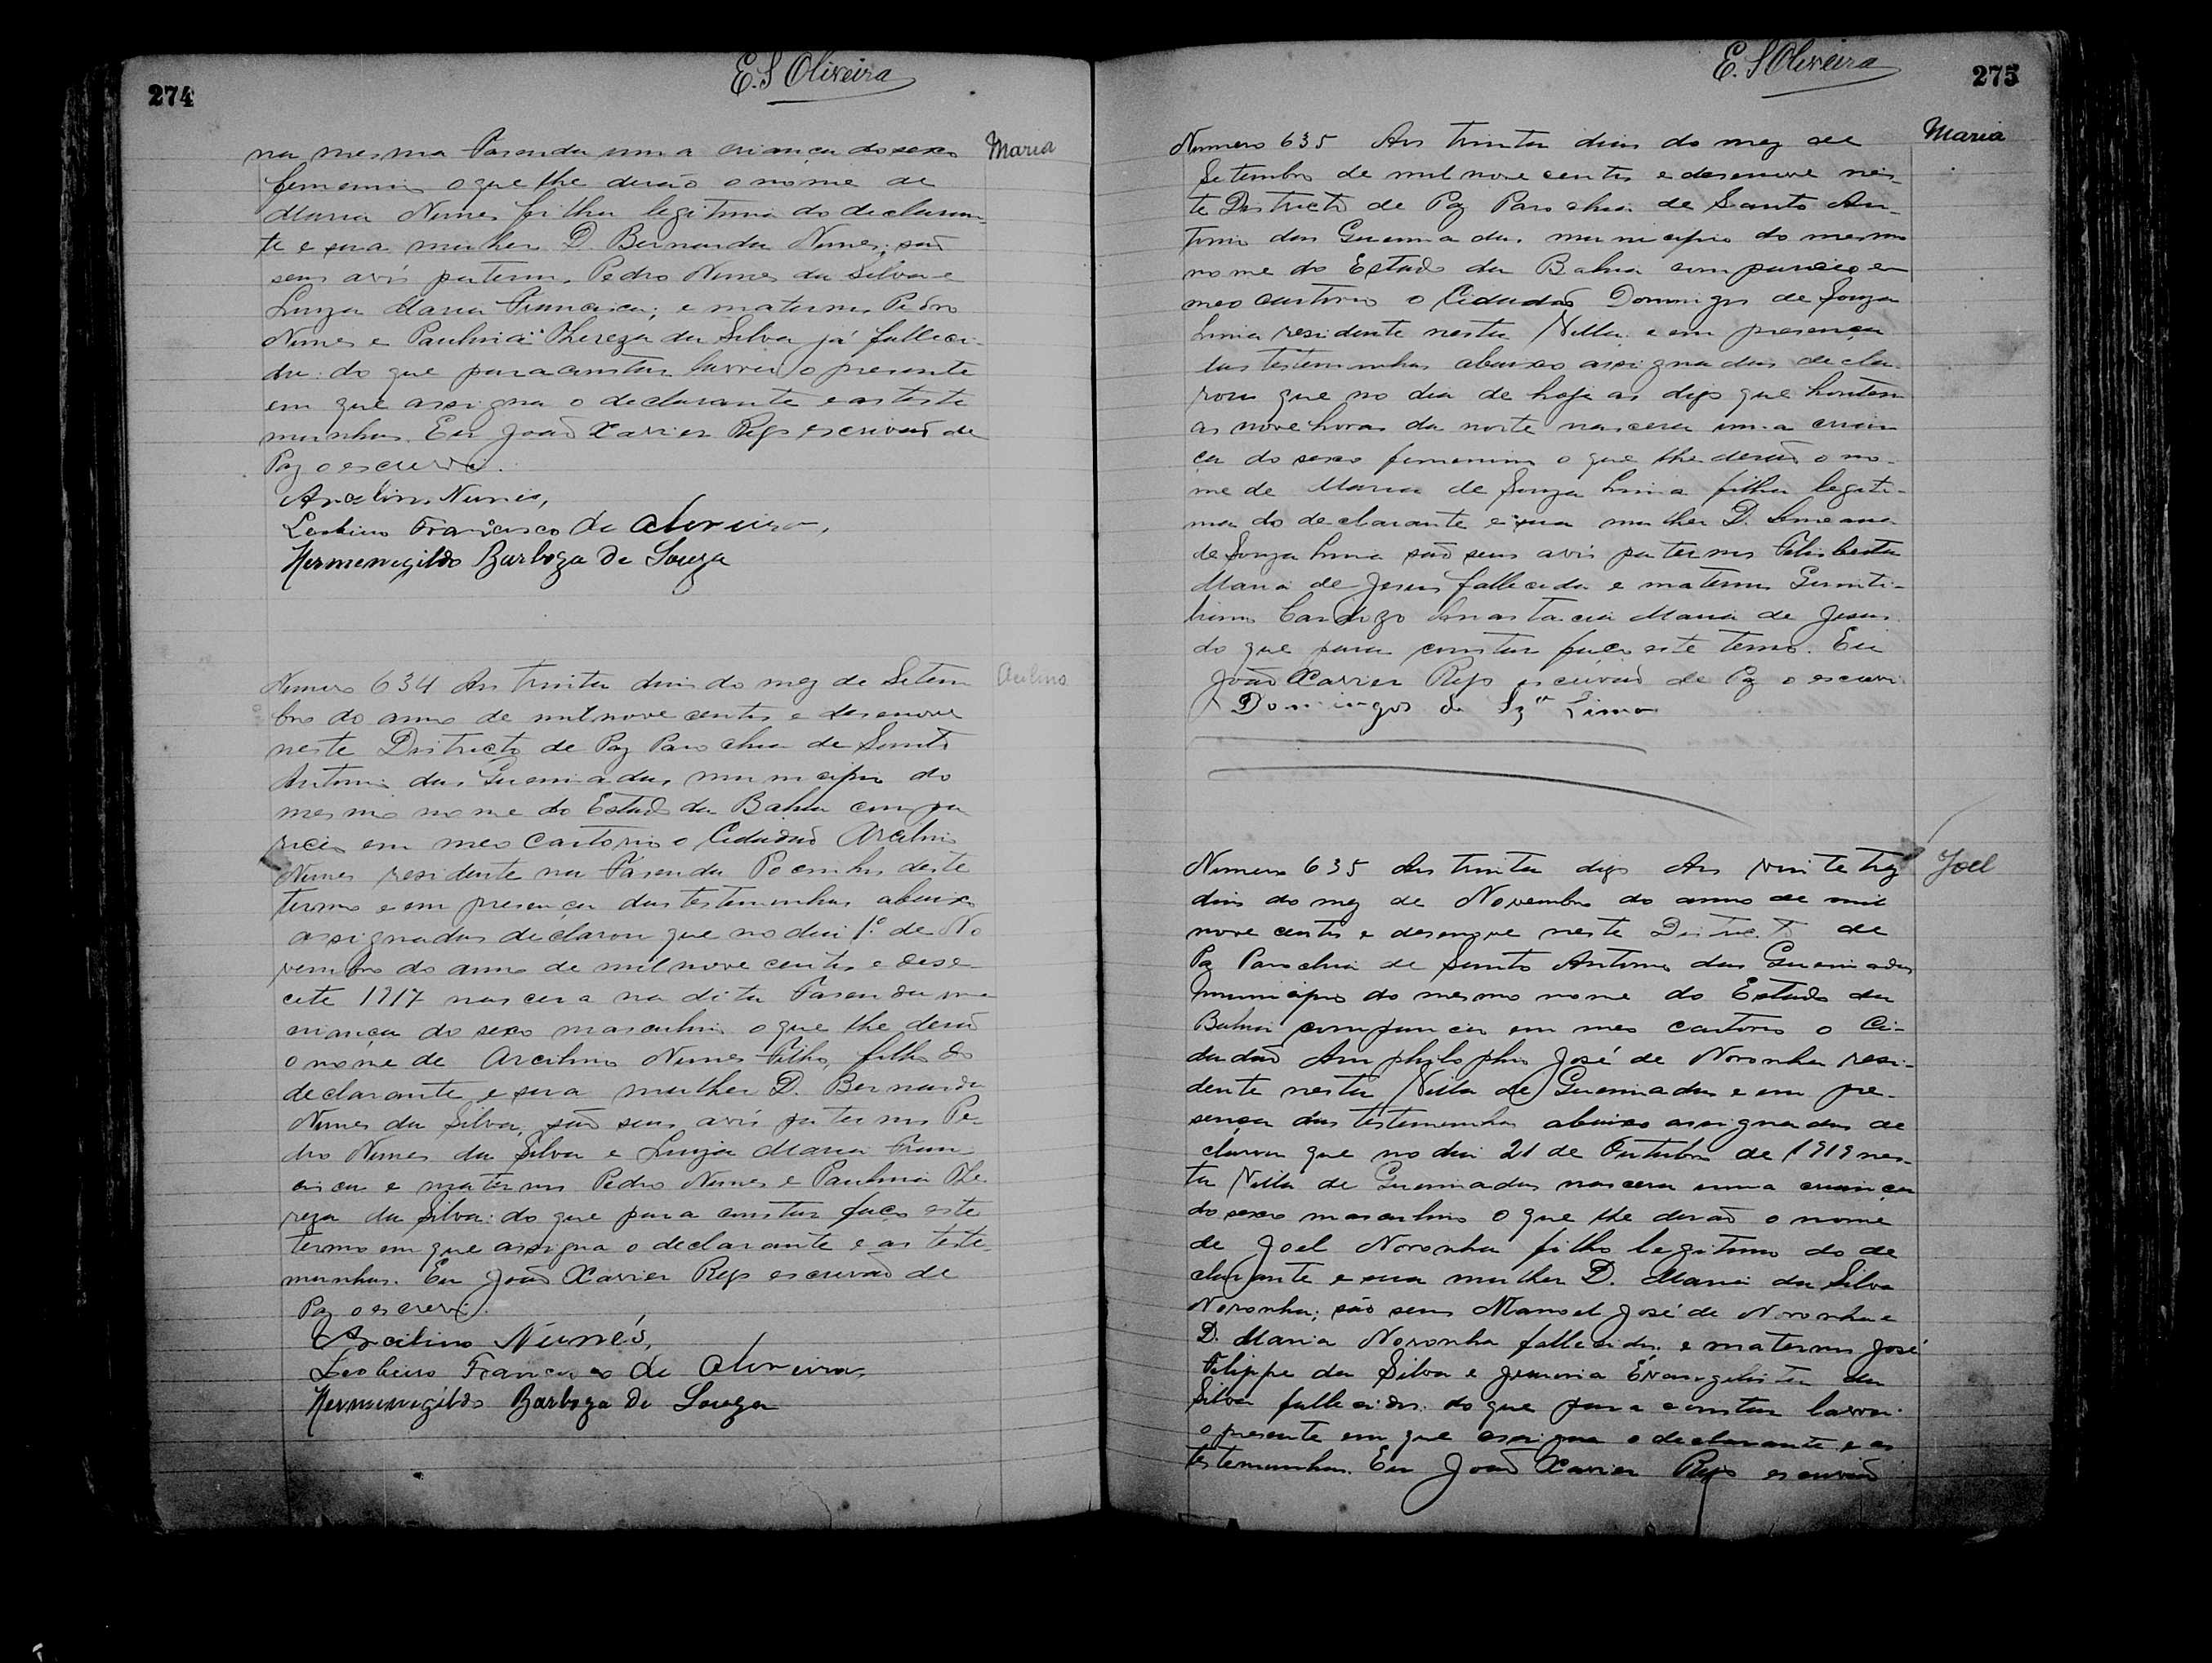 E. S Oliveira
274
Maria
na mesma Fasenda uma criança do sexo
femenino o que lhe derão o nome de
Maria Nunes filha legitima do declaran-
te e sua mulher D. Bernarda Nunes; são
seus avós paternos Pedro Nunes da Silva e
Luiza Maria Francisca; e maternos Pedro
Nunes e Paulina Thereza da Silva já falleci-
da: do que para constar lavrei o presente
em que assigna o declarante e as teste
munhas. Eu João Xavier Rego escrivão de
Paz o escrevi.
Arcelino Nunes,
Francisco de Oliveira,
Hermenegildo Barboza de Souza
Numero 634 Aos trinta dias do mez de Setem
bro do anno de mil nove centos e desenove
neste Districto de Paz Parochia de Santo
Antonio das Queimadas, municipio do
mesmo nome do Estado da Bahia compa
receo em meo cartorio o Cidadão Arcelino
Nunes residente na Fasenda Pocinhos deste
termo e em presença das testemunhas abaixo
assignadas declarou que no dia 1º de No
vembro do anno de mil nove centos e dese-
cete 1917 nascera na dita Fasenda uma
criança do sexo masculino o que lhe derão
o nome de Arcelino Nunes Filho, filho do
declarante e sua mulher D. Bernarda
Nunes da Silva, são seus avós paternos Pe-
dro Nunes da Silva e Luiza Maria Fran-
cisca e maternos Pedro Nunes e Paulina The
reza da Silva: do que para constar faço este
termo em que assigna o declarante e as teste-
munhas. Eu João Xavier Rego escrivão de
Paz o escrevi.
Arcilino Nunes,
Francisco de Oliveira,
Hermenegildo Barboza de Souza
E. S Oliveira
275
Maria
Numero 635 Aos trinta dias do mez de
Setembro de mil nove centos e desenove nes-
te Districto de Paz Parochia de Santo An-
tonio das Queimadas, municipio do mesmo
nome do Estado da Bahia compareceo em
meo cartorio o Cidadão Domingos de Souza
Lima residente nesta Villa e em presença
das testemunhas abaixo assignadas decla-
rou que no dia de hoje as digo que hontem
as nove horas da noite nascera uma crian
ça do sexo femenino o que lhe derão o no-
me de Maria de Souza Lima filha legiti-
ma do declarante e sua mulher D.
de Souza Lima são seus avós paternos Felisberta
Maria de Jesus fallecida e maternos
Cardozo Anastacia Maria de Jesus
do que para constar faço este termo. Eu
João Xavier Rego escrivão de Paz o escrevi
Domingos de Sza Lima
Joel
Numero 635 Aos trinta digo Aos vinte trez
dias do mez de Novembro do anno de mil
nove centos e desenove neste Districto de
Paz Parochia de Santo Antonio das Queimadas
municipio do mesmo nome do Estado da
Bahia compareceo em meo cartorio o Ci-
dadão Amphilophio José de Noronha resi-
dente nesta Villa de Queimadas e em pre-
sença das testemunhas abaixo assignadas de
clarou que no dia 21 de Outubro de 1919 nes-
ta Villa de Queimadas nascera uma criança
do sexo masculino o que lhe derão o nome
de Joel Noronha filho legitimo do de
clarante e sua mulher D. Maria da Silva
Noronha; são seus Manoel José de Noronha e
D. Maria Noronha fallecidos e maternos José
Filippe da Silva e Jesuina Evangelista da
Silva fallecidos: do que para constar lavrei
o presente em que assigna o declarante e as
testemunhas. Eu João Xavier Rego escrivão